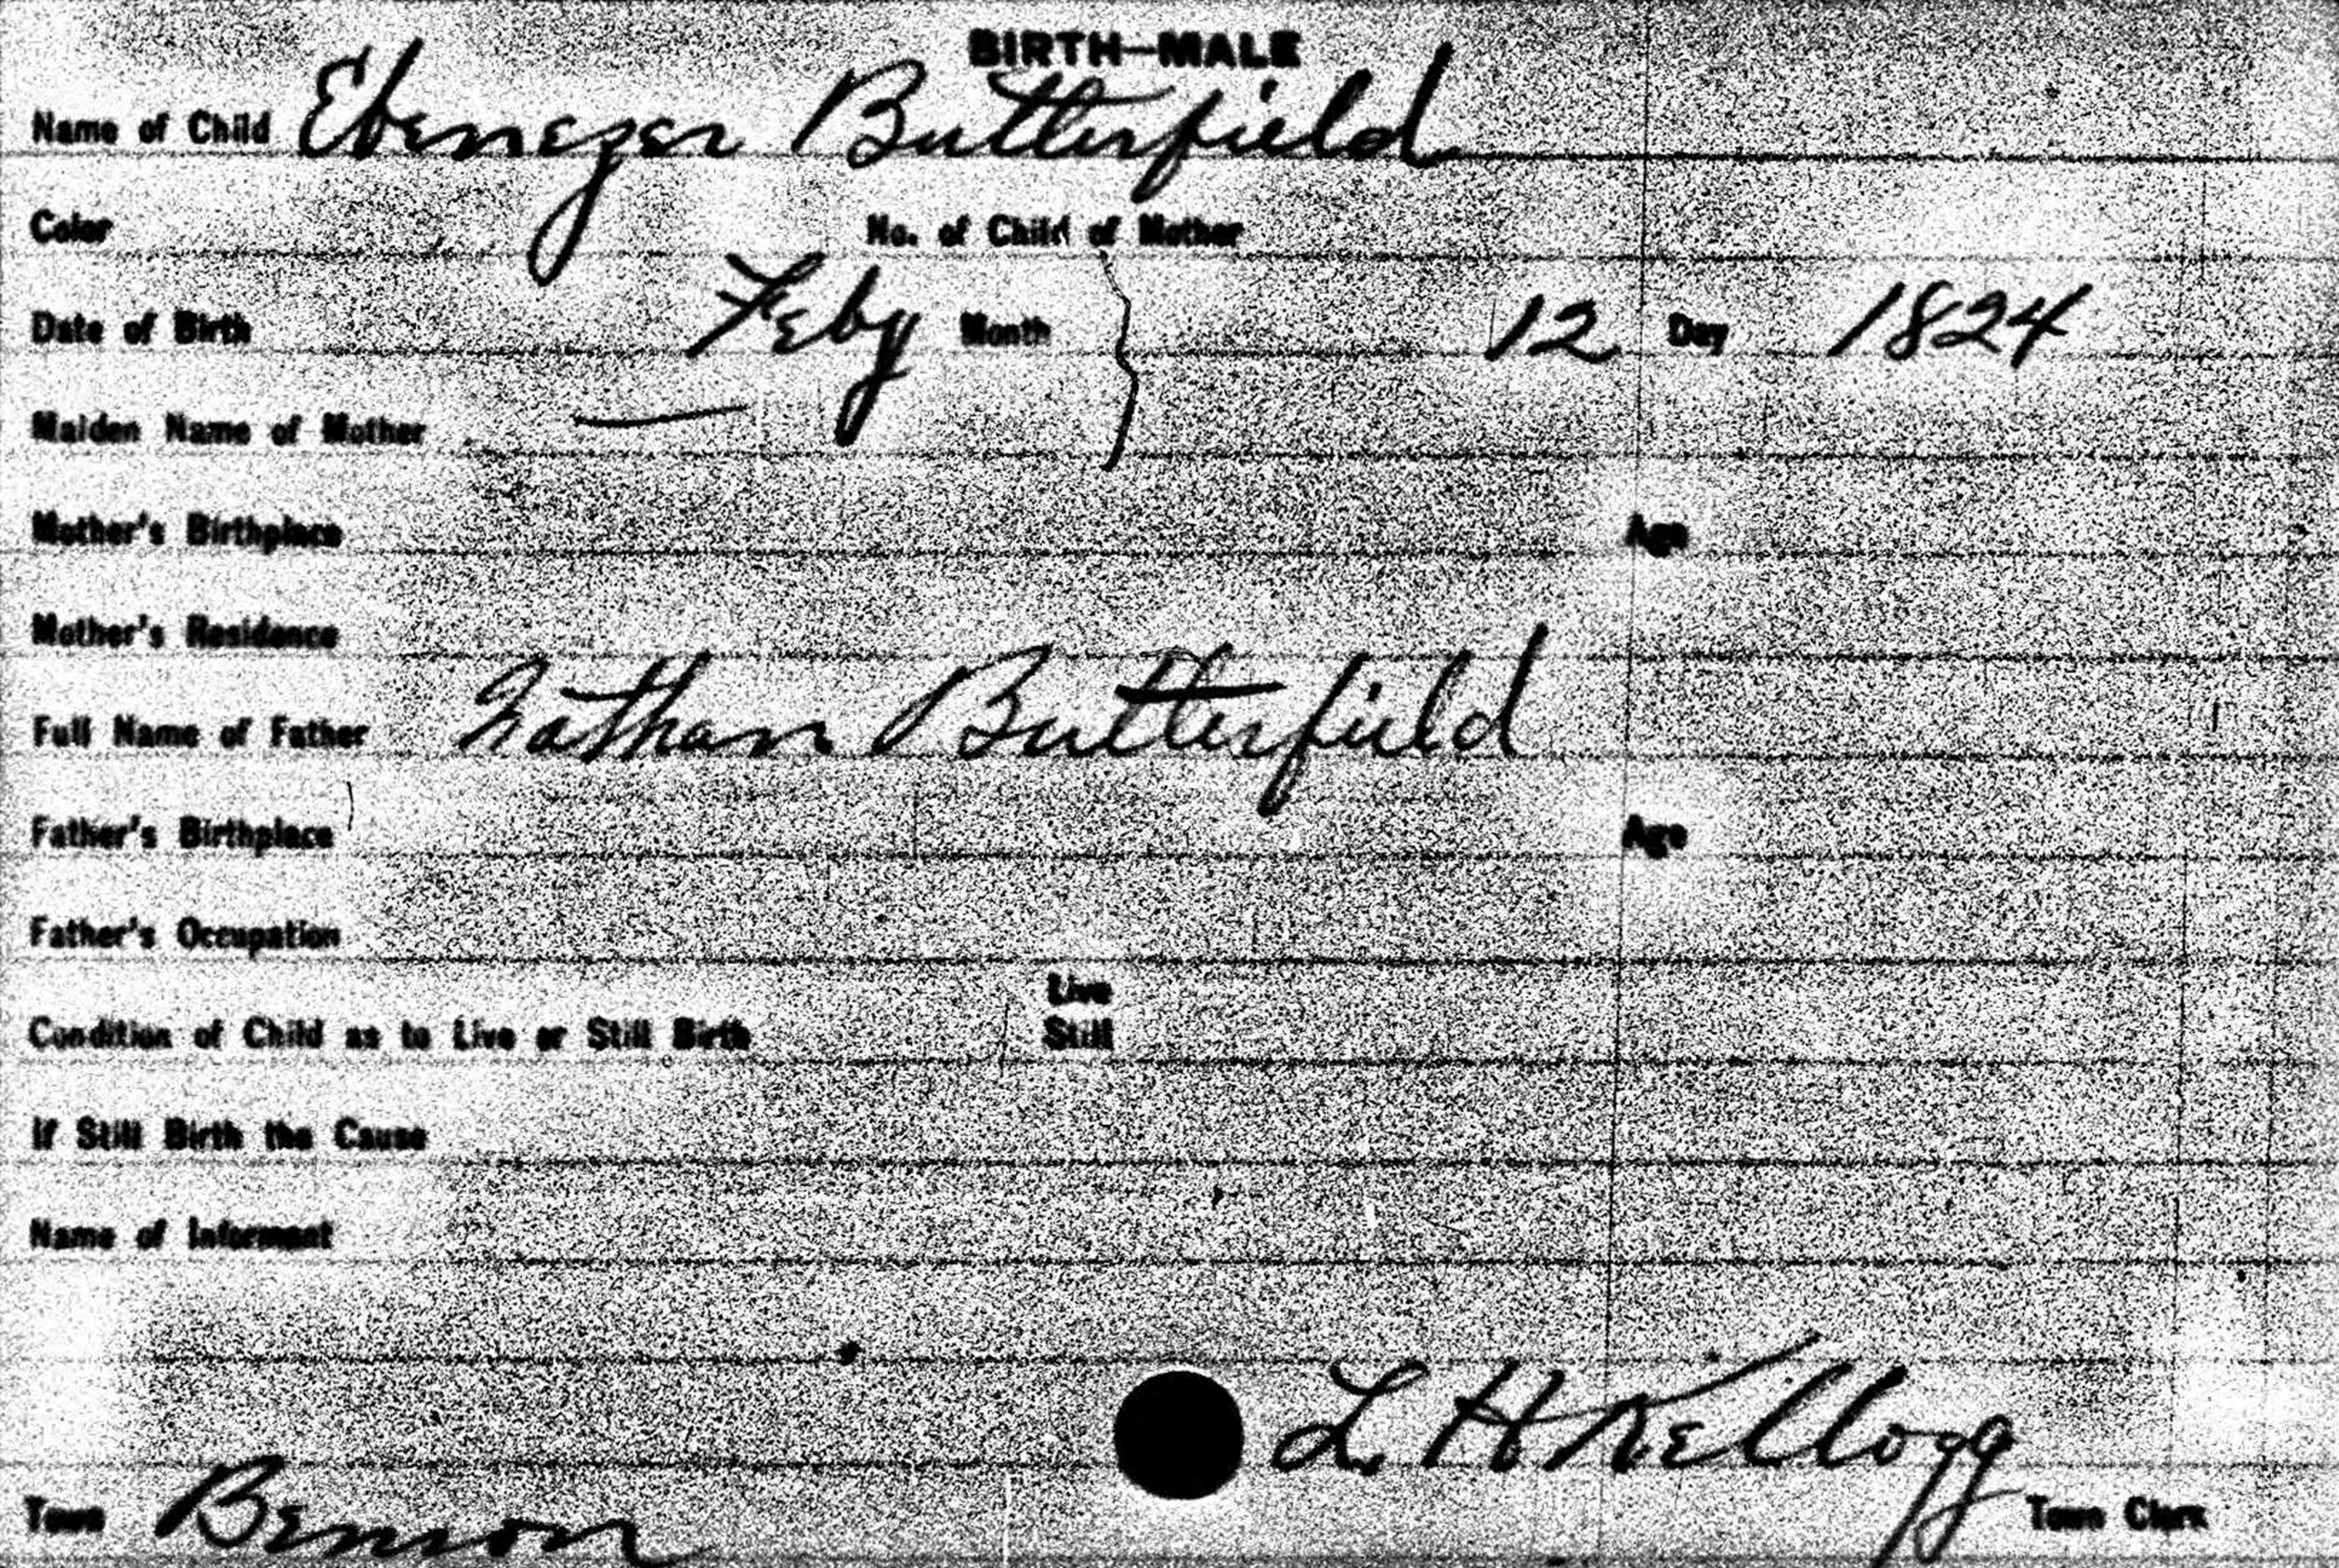 BIRTH—MALE
Name of Child Ebenezer Butterfield
Color No. of Child of Mother
Date of Birth Feby Month 12 Day 1824
Maiden Name of Mother —
Mother's Birthplace Age
Mother's Residence
Full Name of Father Nathan Butterfield
Father's Birthplace Age
Father's Occupation
Live
Condition of Child as to Live or Still Birth Still
If Still Birth the Cause
Name of Informant
L H Kellogg
Town Benson Town Clerk